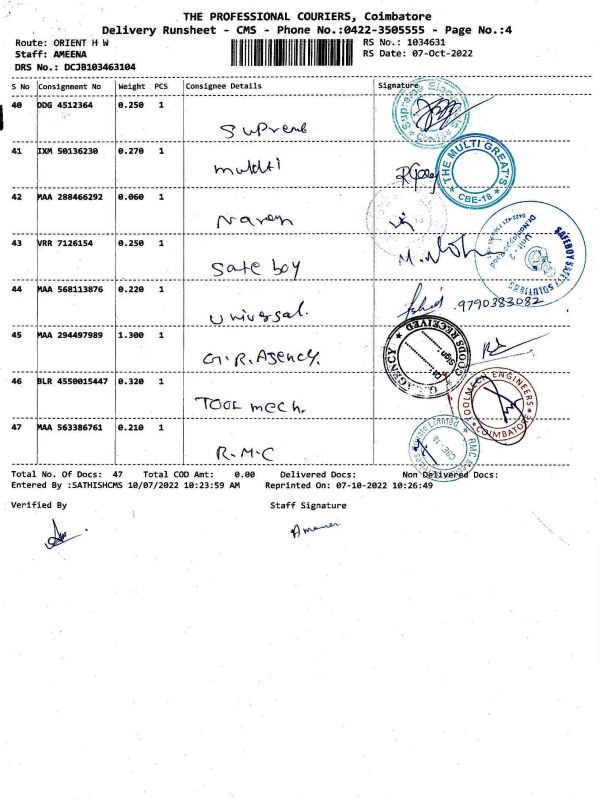 THE PROFESSIONAL COURIERS, Coimbatore
Delivery Runsheet - CMS - Phone No.:0422-3505555 - Page No.:4
Route: ORIENT H W RS No.: 1034631
Staff: AMEENA RS Date: 07-Oct-2022
DRS No.: DCJB103463104
S No Consignment No Weight PCS Consignee Details Signature
40 DDG 4512364 0.250 1
Supreme
41 IXM 50136230 0.270 1
multi
THE MULTI GREAT'S
CBE-18
42 MAA 288466292 0.060 1
Naren
43 VRR 7126154 0.250 1
Safe boy
SAFEBOY SAFETY SOLUTIONS
Unit - 2
44 MAA 568113876 0.220 1
Universal. 9790383082
45 MAA 294497989 1.300 1
G.R. Agency.
GOODS RECEIVED
Sign:
AGENCY
46 BLR 4550015447 0.320 1
TOOL mech.
TOOLMECH ENGINEERS
COIMBATORE
47 MAA 563386761 0.210 1
R.M.C
Limited
RMC
CBE
Total No. Of Docs: 47 Total COD Amt: 0.00 Delivered Docs: Non Delivered Docs:
Entered By :SATHISHCMS 10/07/2022 10:23:59 AM Reprinted On: 07-10-2022 10:26:49
Verified By Staff Signature